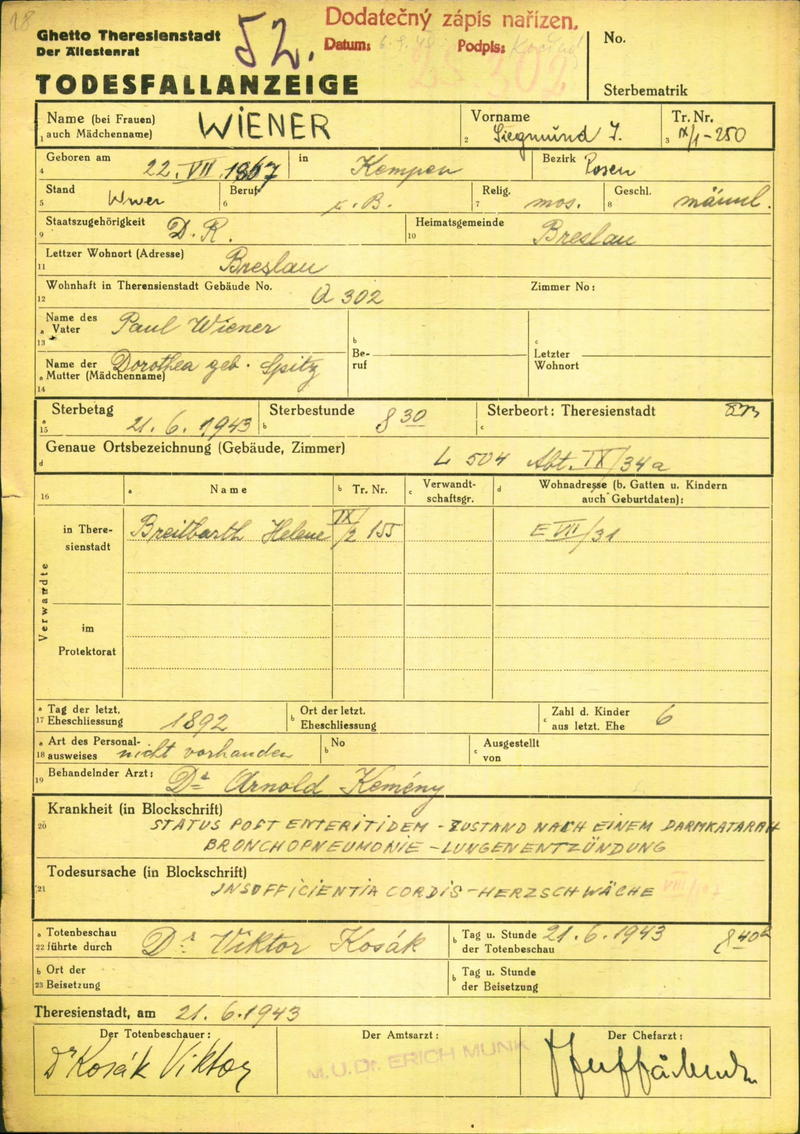 18
Ghetto Theresienstadt
Der Ältestenrat
52.
Dodatečný zápis nařízen.
Datum: Podpis:
No.
TODESFALLANZEIGE
Sterbematrik
Name (bei Frauen) WIENER Vorname Siegmund I. Tr. Nr.
1 auch Mädchenname) 2 3 IX/1-250
Geboren am 22. VII. 1867 in Kempen Bezirk Posen
4
Stand Wwer Beruf Relig. mos. Geschl. männl.
5 6 7 8
Staatszugehörigkeit D. R. Heimatsgemeinde Breslau
9 10
Lettzer Wohnort (Adresse) Breslau
11
Wohnhaft in Therensienstadt Gebäude No. Q 302 Zimmer No:
12
Name des Vater Paul Wiener
a 13
b Beruf
c Letzter Wohnort
Name der Dorothea geb. Spitz
a Mutter (Mädchenname)
14
Sterbetag 21. 6. 1943 Sterbestunde 8 30 Sterbeort: Theresienstadt
a 15 b c
Genaue Ortsbezeichnung (Gebäude, Zimmer) L 504 Abt. IX/34a
d
16 a Name b Tr. Nr. c Verwandtschaftsgr. d Wohnadresse (b. Gatten u. Kindern auch Geburtdaten):
Verwandte
in Theresienstadt Breitbarth Helene IX/2 155 E VII/31
im Protektorat
a Tag der letzt. b Ort der letzt. c Zahl d. Kinder 6
17 Eheschliessung 1892 Eheschliessung aus letzt. Ehe
a Art des Personal- b No c Ausgestellt
18 ausweises nicht vorhanden von
Behandelnder Arzt: Dr Arnold Kemény
19
Krankheit (in Blockschrift)
20 STATUS POST ENTERITIDEM - ZUSTAND NACH EINEM DARMKATARRH
BRONCHOPNEUMONIE - LUNGENENTZÜNDUNG
Todesursache (in Blockschrift)
21 INSUFFICIENTIA CORDIS - HERZSCHWÄCHE
a Totenbeschau Dr. Viktor Kosák b Tag u. Stunde 21. 6. 1943 8 40
22 führte durch der Totenbeschau
b Ort der b Tag u. Stunde
23 Beisetzung der Beisetzung
Theresienstadt, am 21. 6. 1943
Der Totenbeschauer: Der Amtsarzt: Der Chefarzt:
Dr Kosák Viktor M.U.Dr. ERICH MUNK